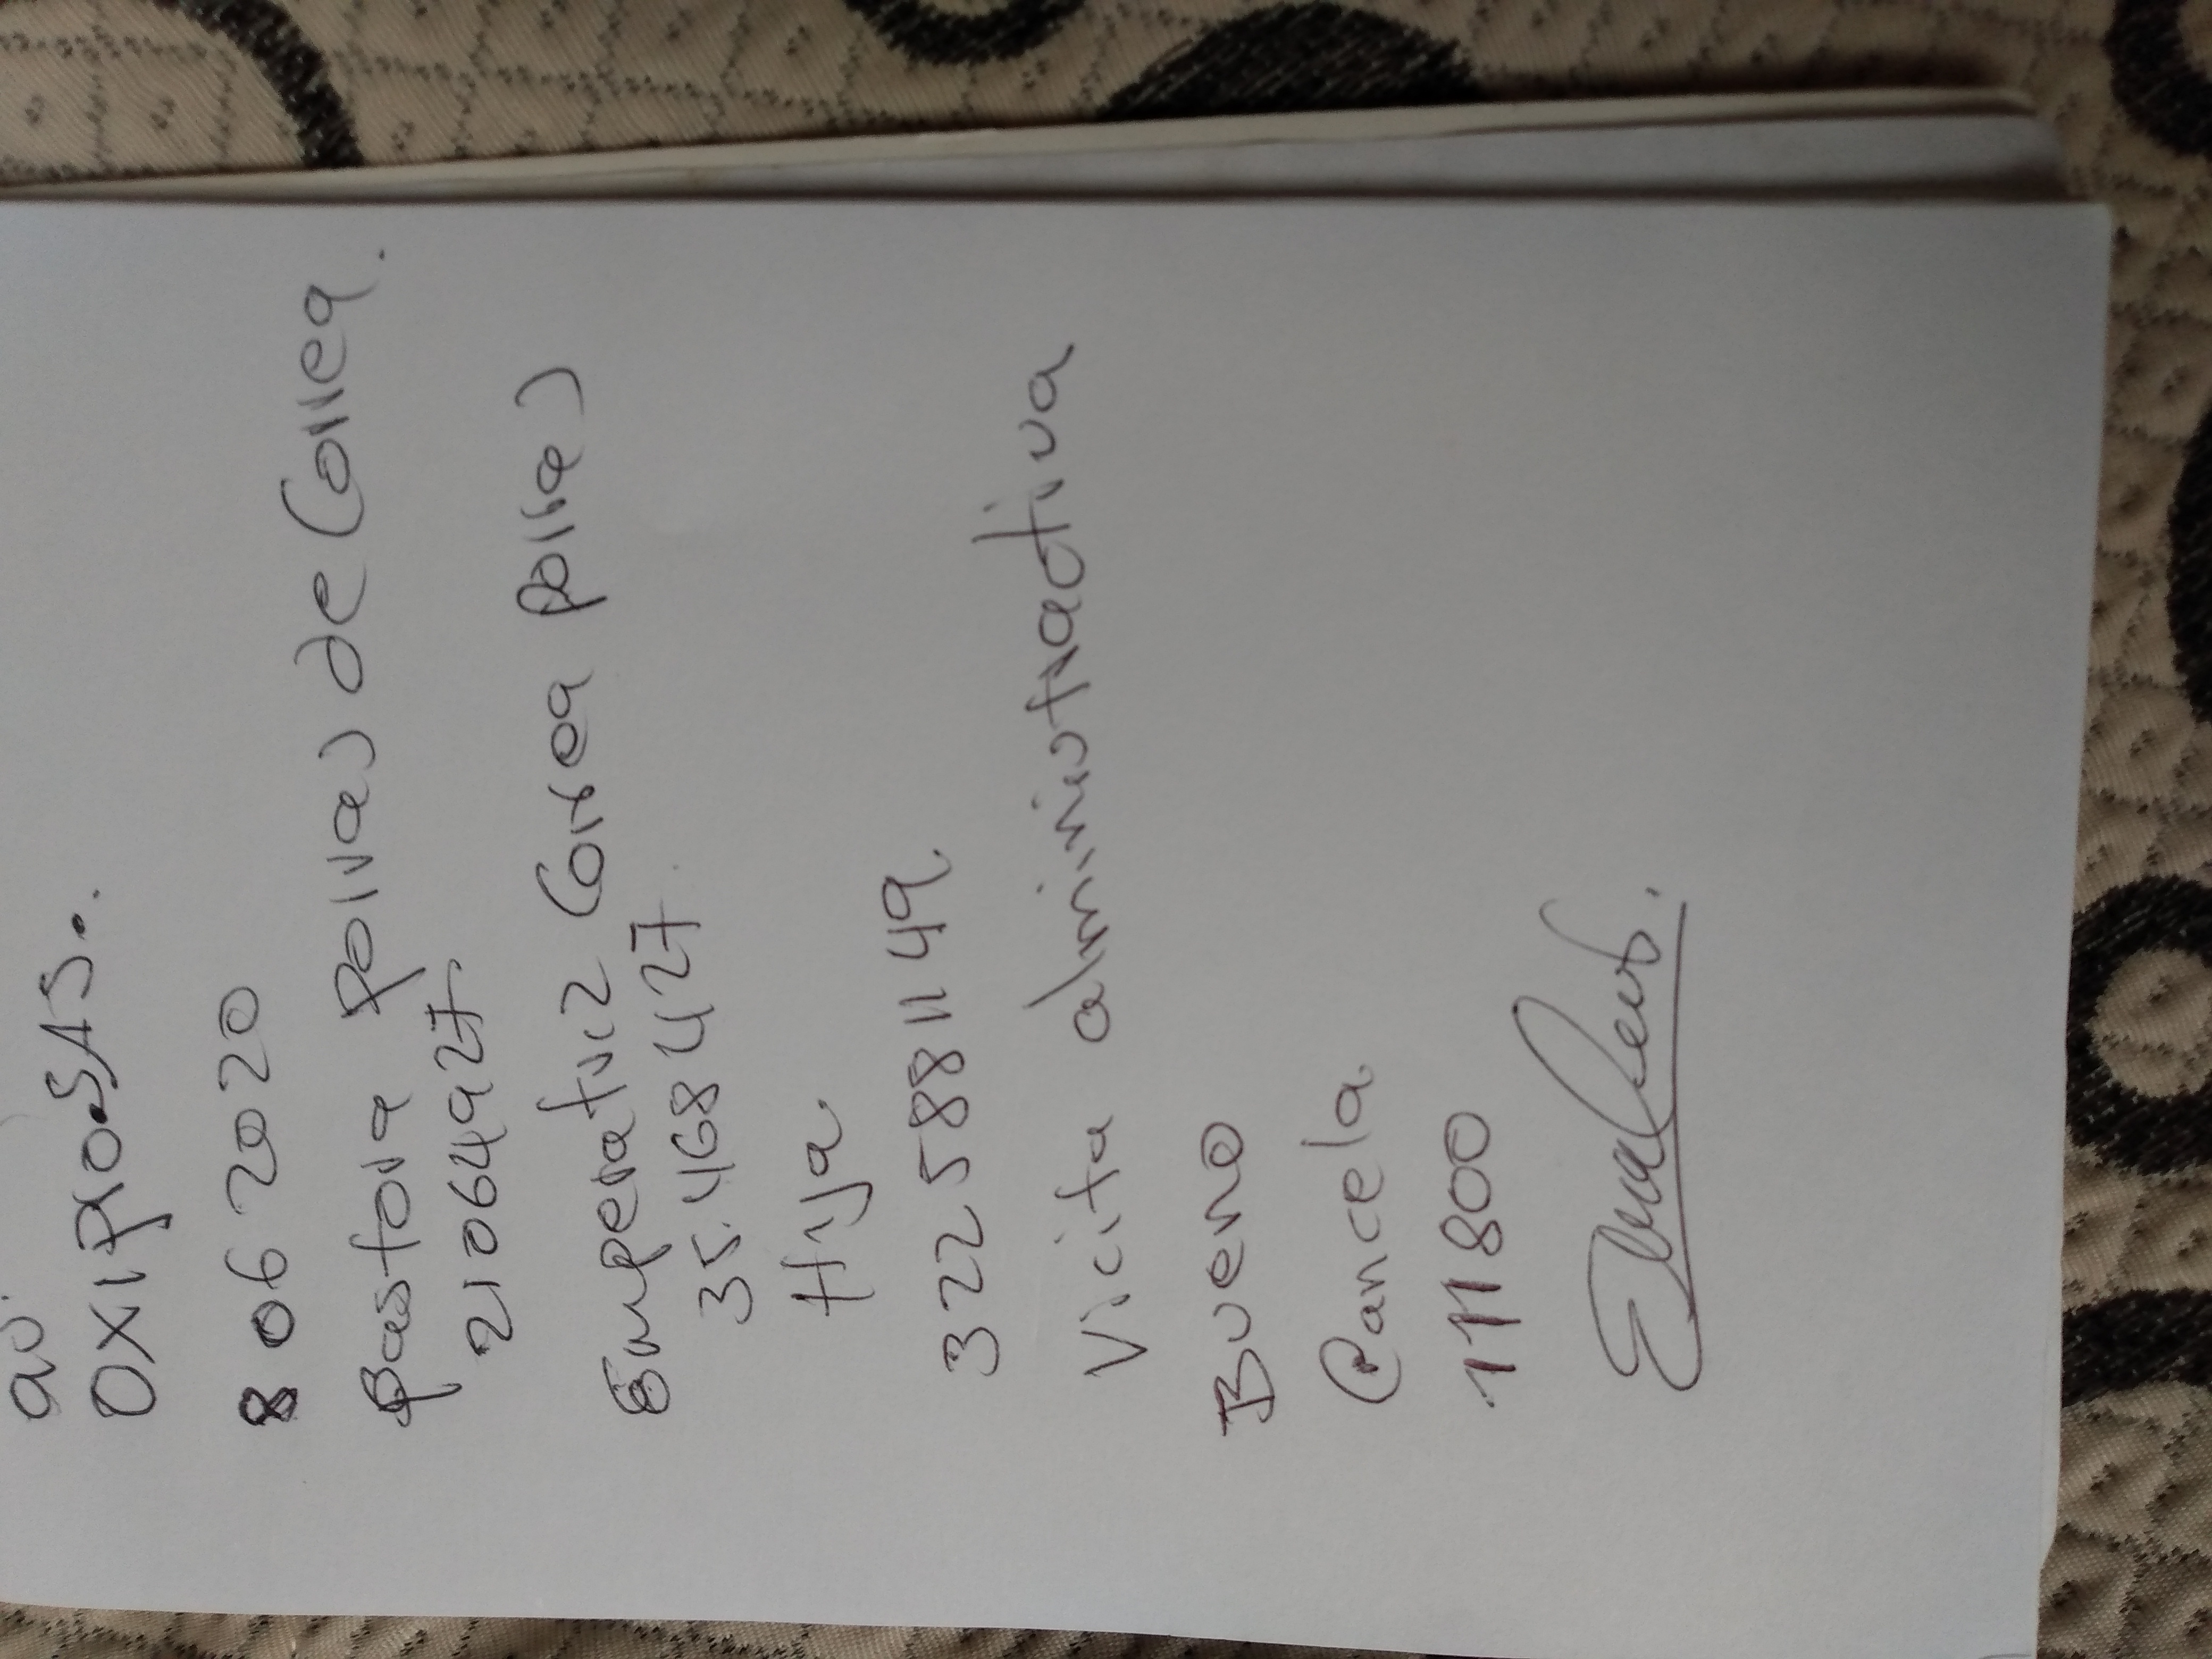 OXIPROSAS..
8 06 2020
Pastora Porras de Correa.
21064927
Emperatriz Correa Porras
35.468427.
Hija.
3225881149.
Vicita adminiustractiva
Bueno
Cancela
111800